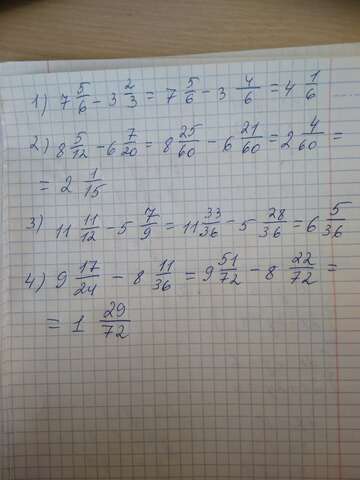 1) 7 5/6 - 3 2/3 = 7 5/6 - 3 4/6 = 4 1/6
2) 8 5/12 - 6 7/20 = 8 25/60 - 6 21/60 = 2 4/60 =
= 2 1/15
3) 11 11/12 - 5 7/9 = 11 33/36 - 5 28/36 = 6 5/36
4) 9 17/24 - 8 11/36 = 9 51/72 - 8 22/72 =
= 1 29/72